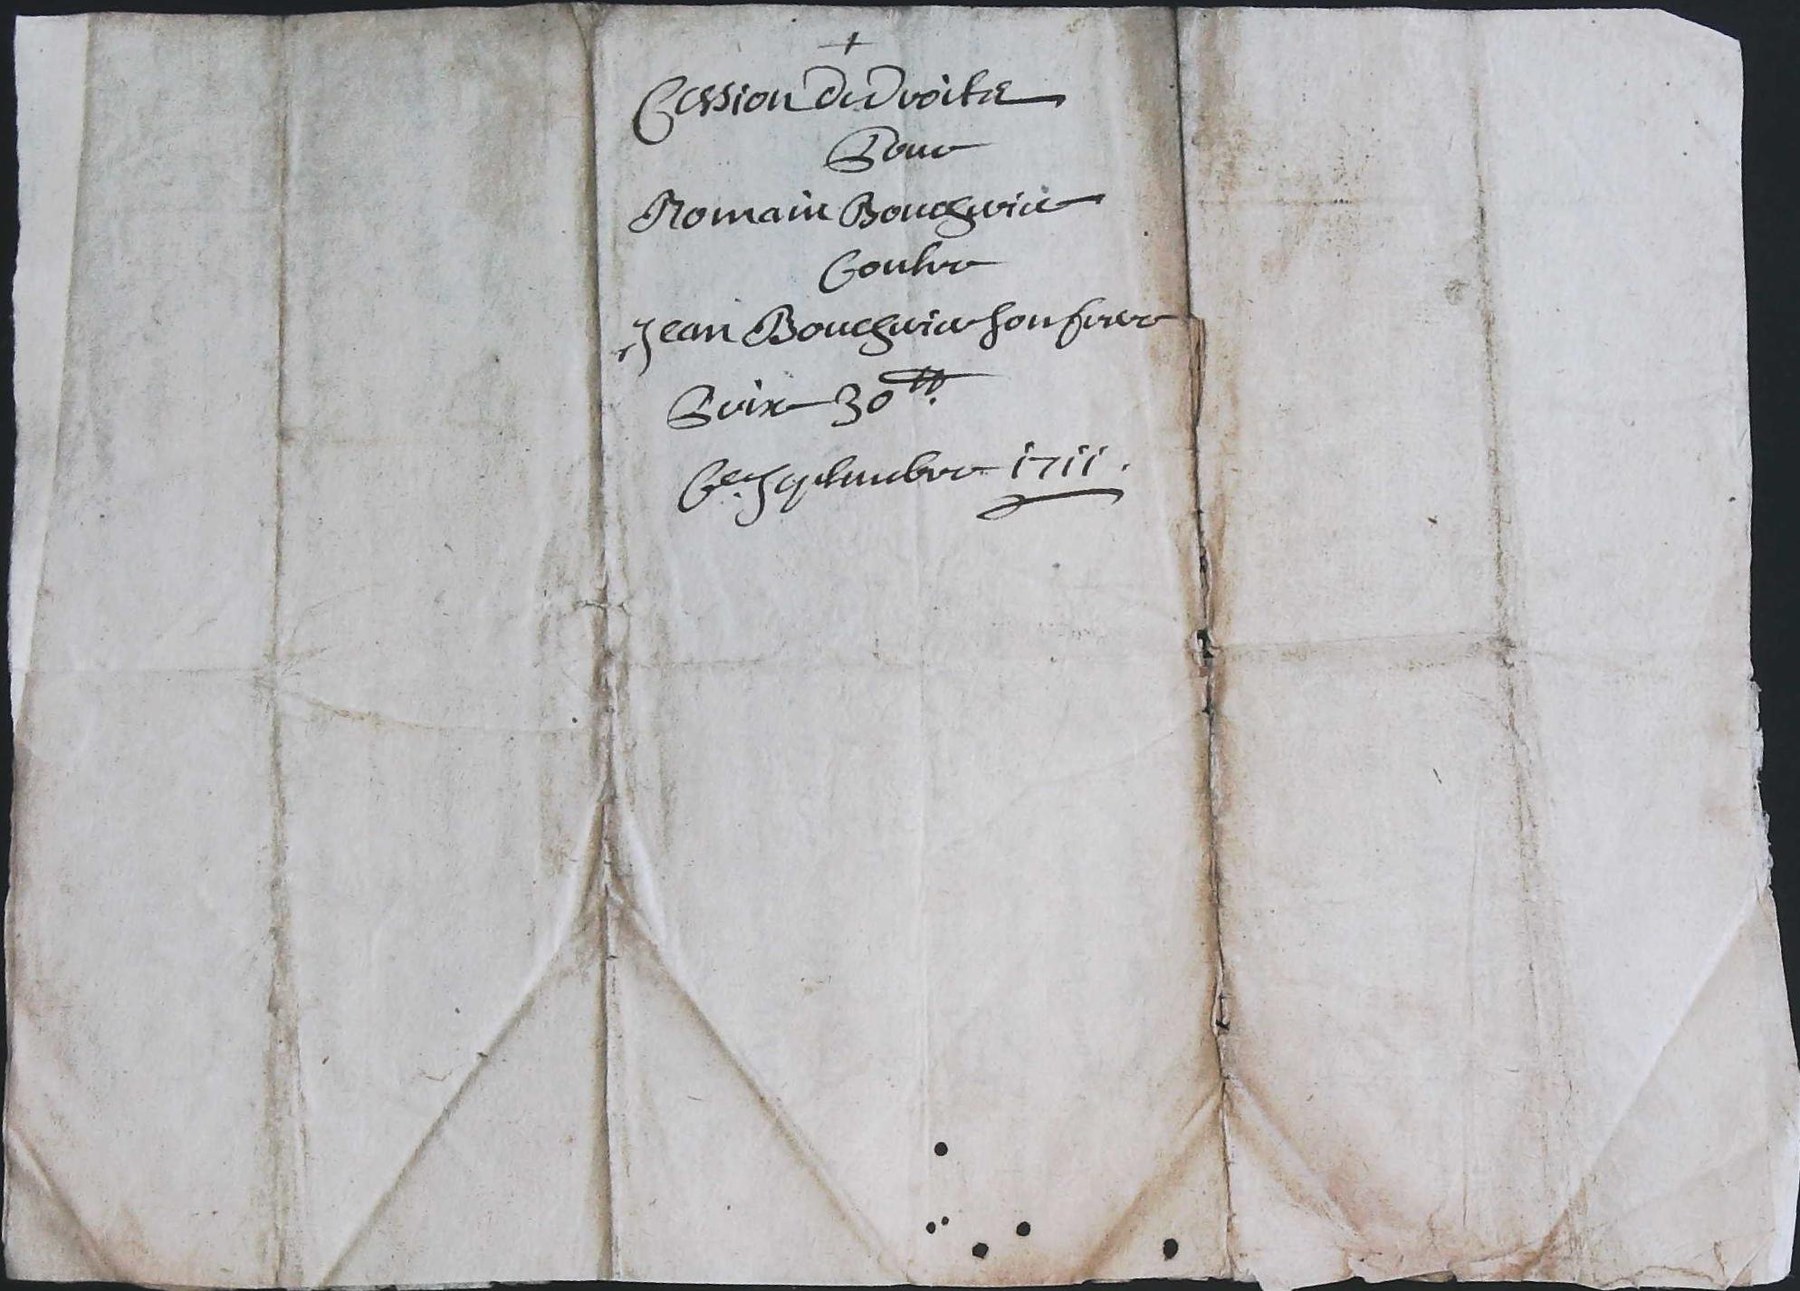 +
Cession de droits
Pour
Romain Boucherie
Contre
Jean Boucherie son frere
Prix 30 tt.
Ce. Septembre 1711.